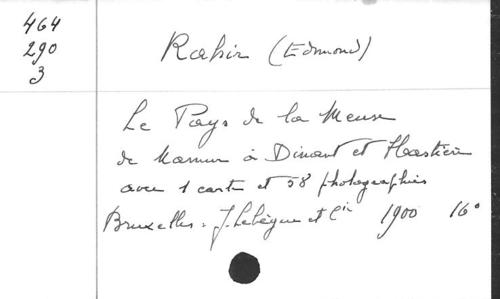 464
290
3
Rahir (Edmond)
Le Pays de la Meuse
de Namur à Dinant et Hastière
avec 1 carte et 58 photographies
Bruxelles : J. Lebègue et Cie 1900 16°